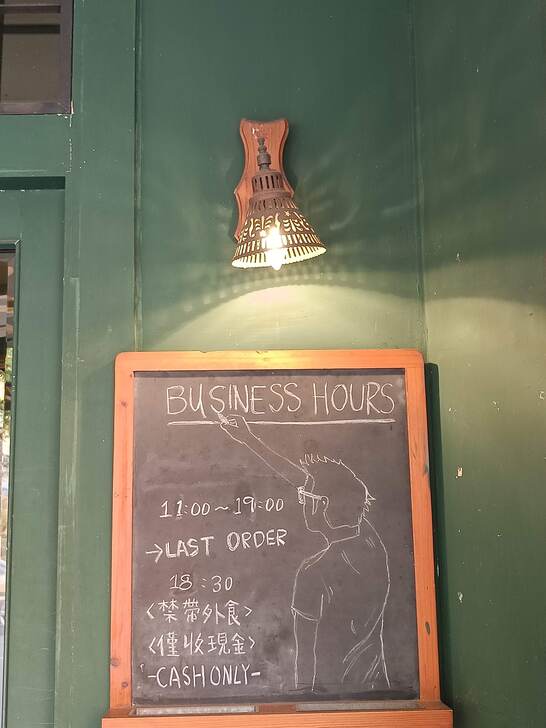 BUSINESS HOURS
11:00～19:00
→LAST ORDER
18:30
〈禁帶外食〉
〈僅收現金〉
-CASH ONLY-